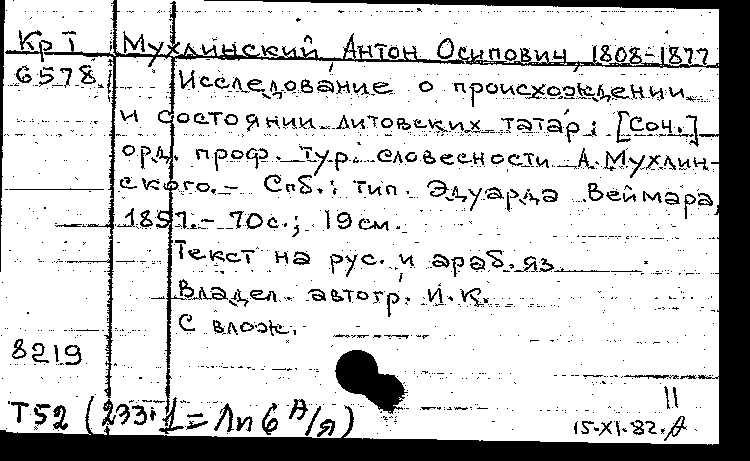 Кр Т Мухлинский, Антон Осипович, 1808-1877
6578. Исследование о происхождении
и состоянии литовских татар: [Соч.]
орд. проф. тур. словесности А. Мухлин-
ского. - Спб.: тип. Эдуарда Веймара,
1857. - 70с.; 19см.
Текст на рус. и араб. яз.
Владел. автогр. И.К.
С влож.
8219
II
Т52 (233.1=Лп6 А/я)
15.XI.82.